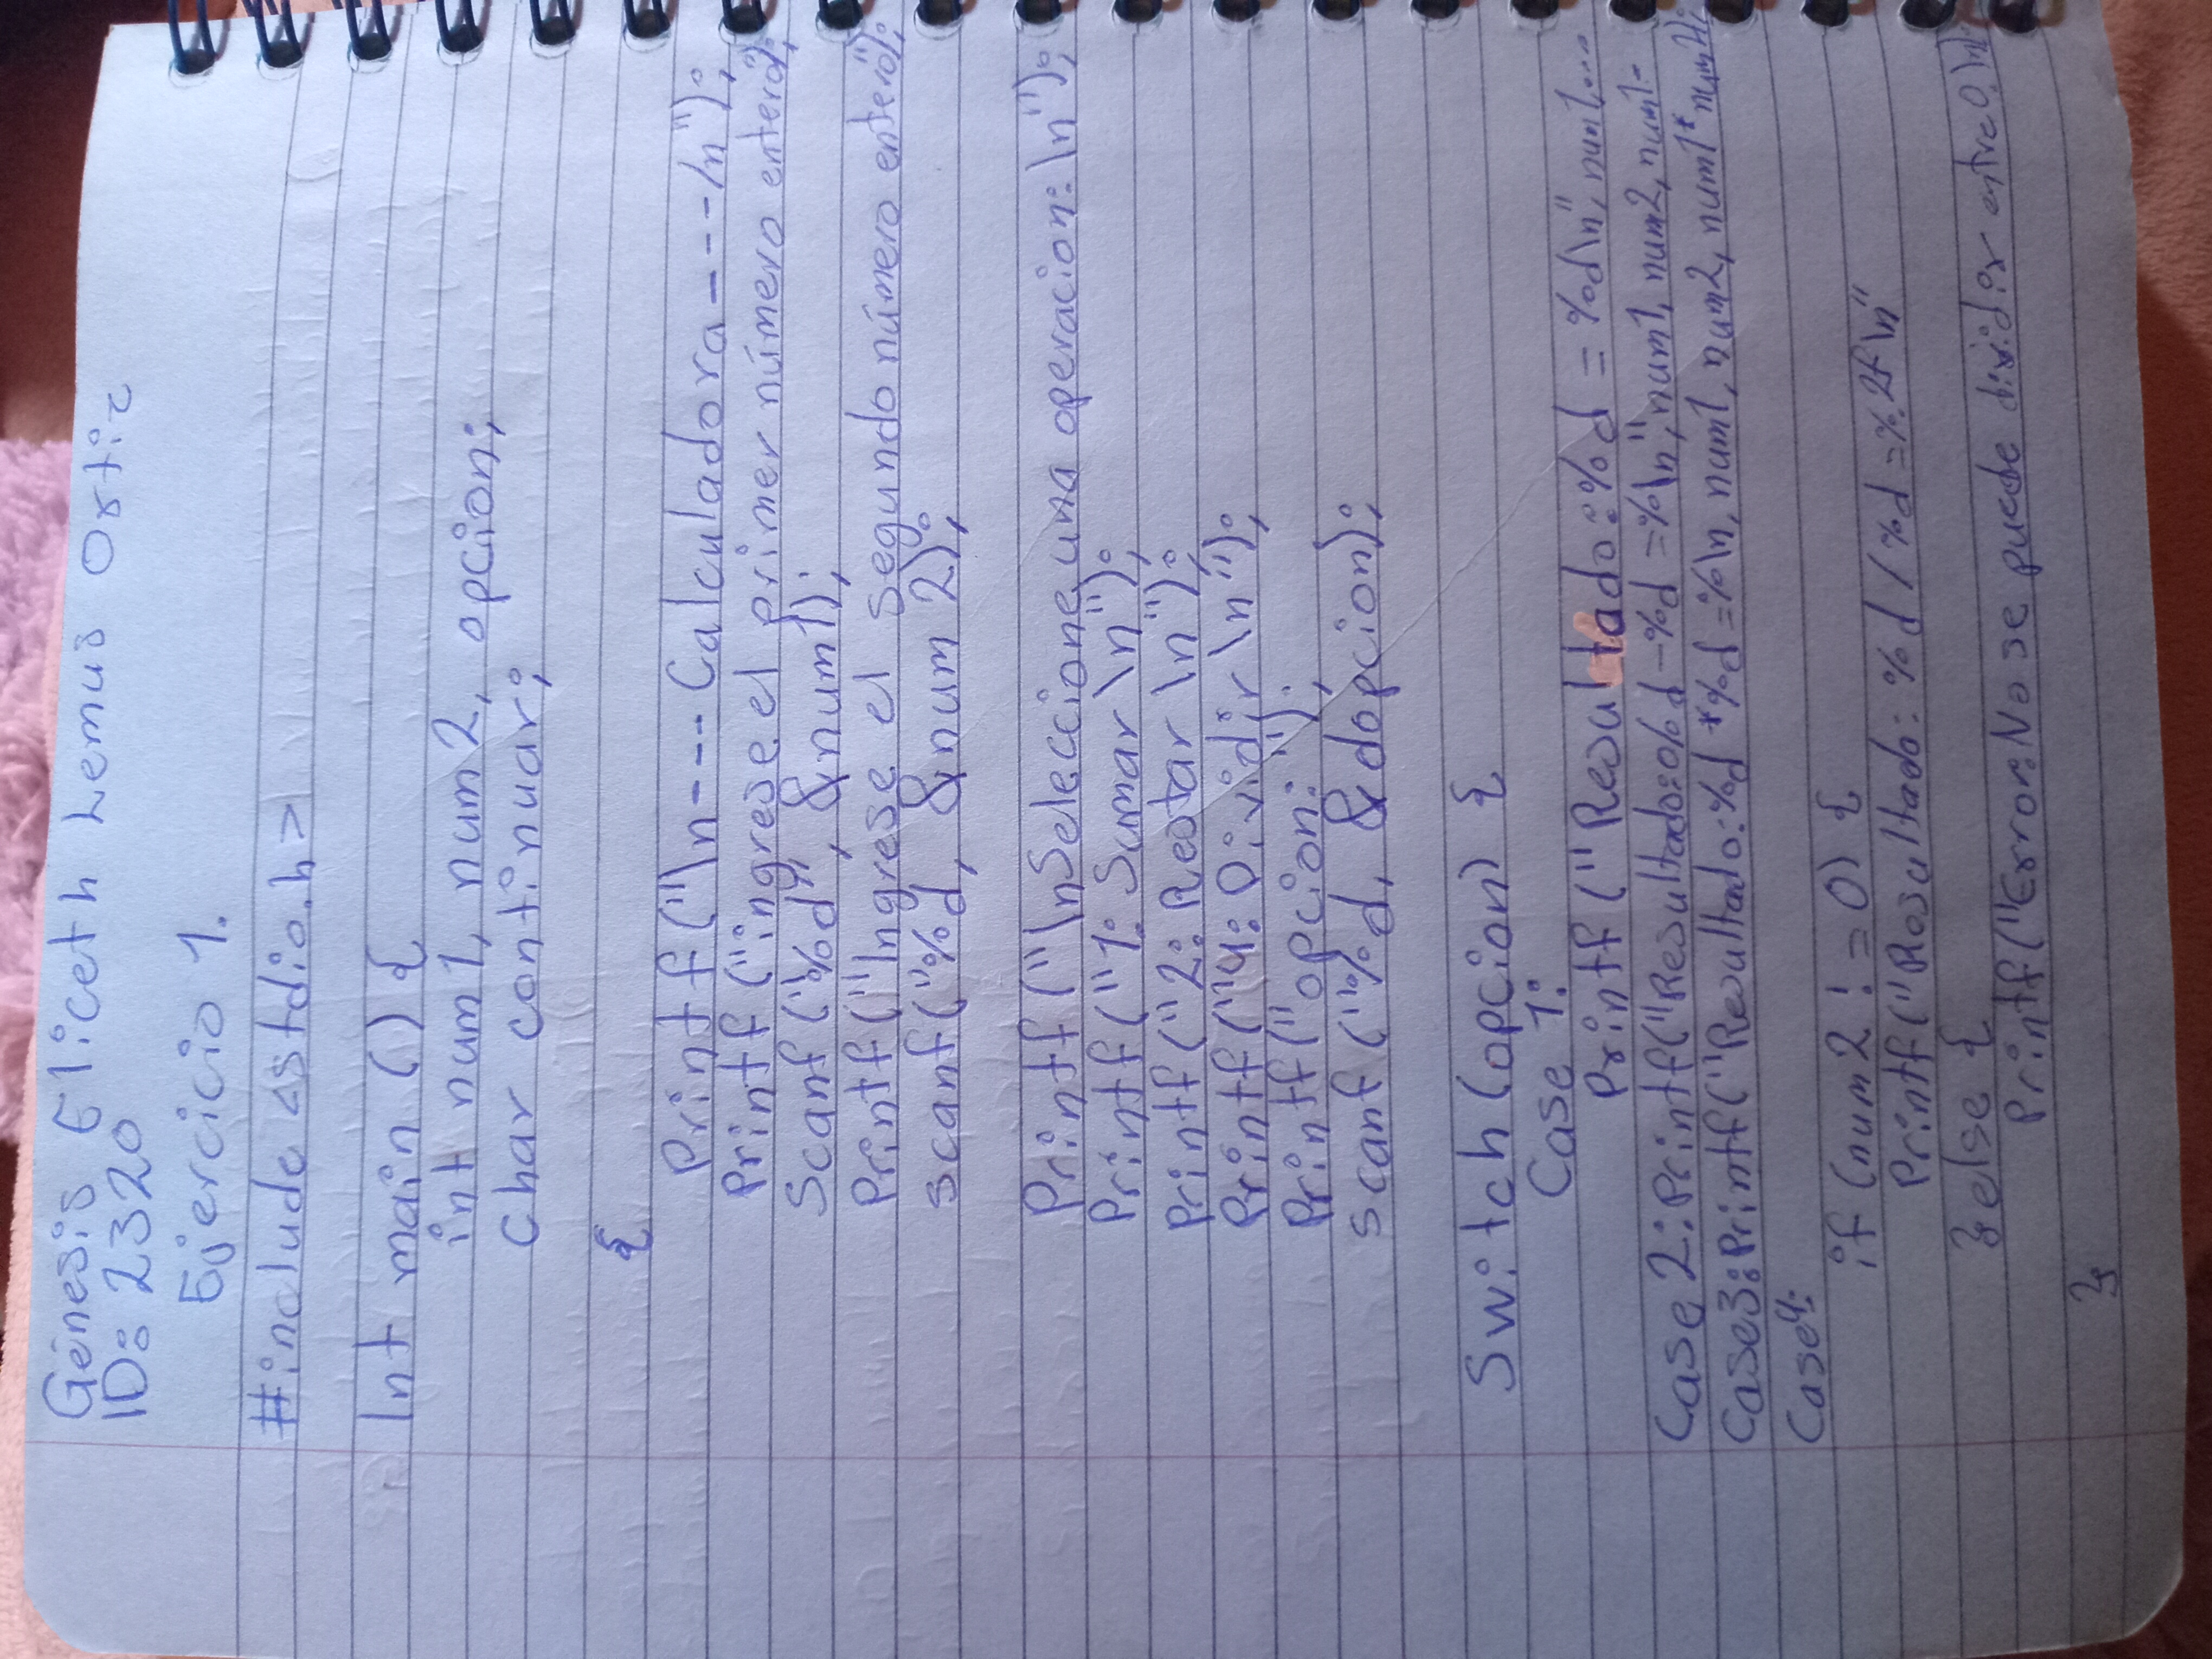 Génesis Eliceth Lemus Ortiz
ID: 2320
Ejercicio 1.
#include <stdio.h>
Int main () {
int num1, num2, opcion;
Char continuar;
{
Printf ("\n---Calculadora---/n");
Printf ("ingrese el primer número entero");
Scanf ("%d", &num1);
Printf ("Ingrese el segundo número entero");
scanf ("%d, &num 2);
Printf ("\nSeleccione una operacion: \n");
Printf ("1: Sumar \n");
Printf ("2: Restar \n");
Printf ("4: Dividir \n");
Printf ("opcion: ");
scanf ("%d, &dopcion);
Switch (opcion) {
Case 1:
Printf ("Resultado: %d = %d\n", num1,...
Case 2: Printf ("Resultado: %d - %d = %\n", num1, num2, num1-
Case3: Printf ("Resultado: %d * %d = %\n, num1, num2, num1*num
Case4:
if (num2 != 0) {
Printf ("Resultado: %d / %d = %.2f \n"
}else {
Printf ("Error: No se puede dividir entre 0.\n
}